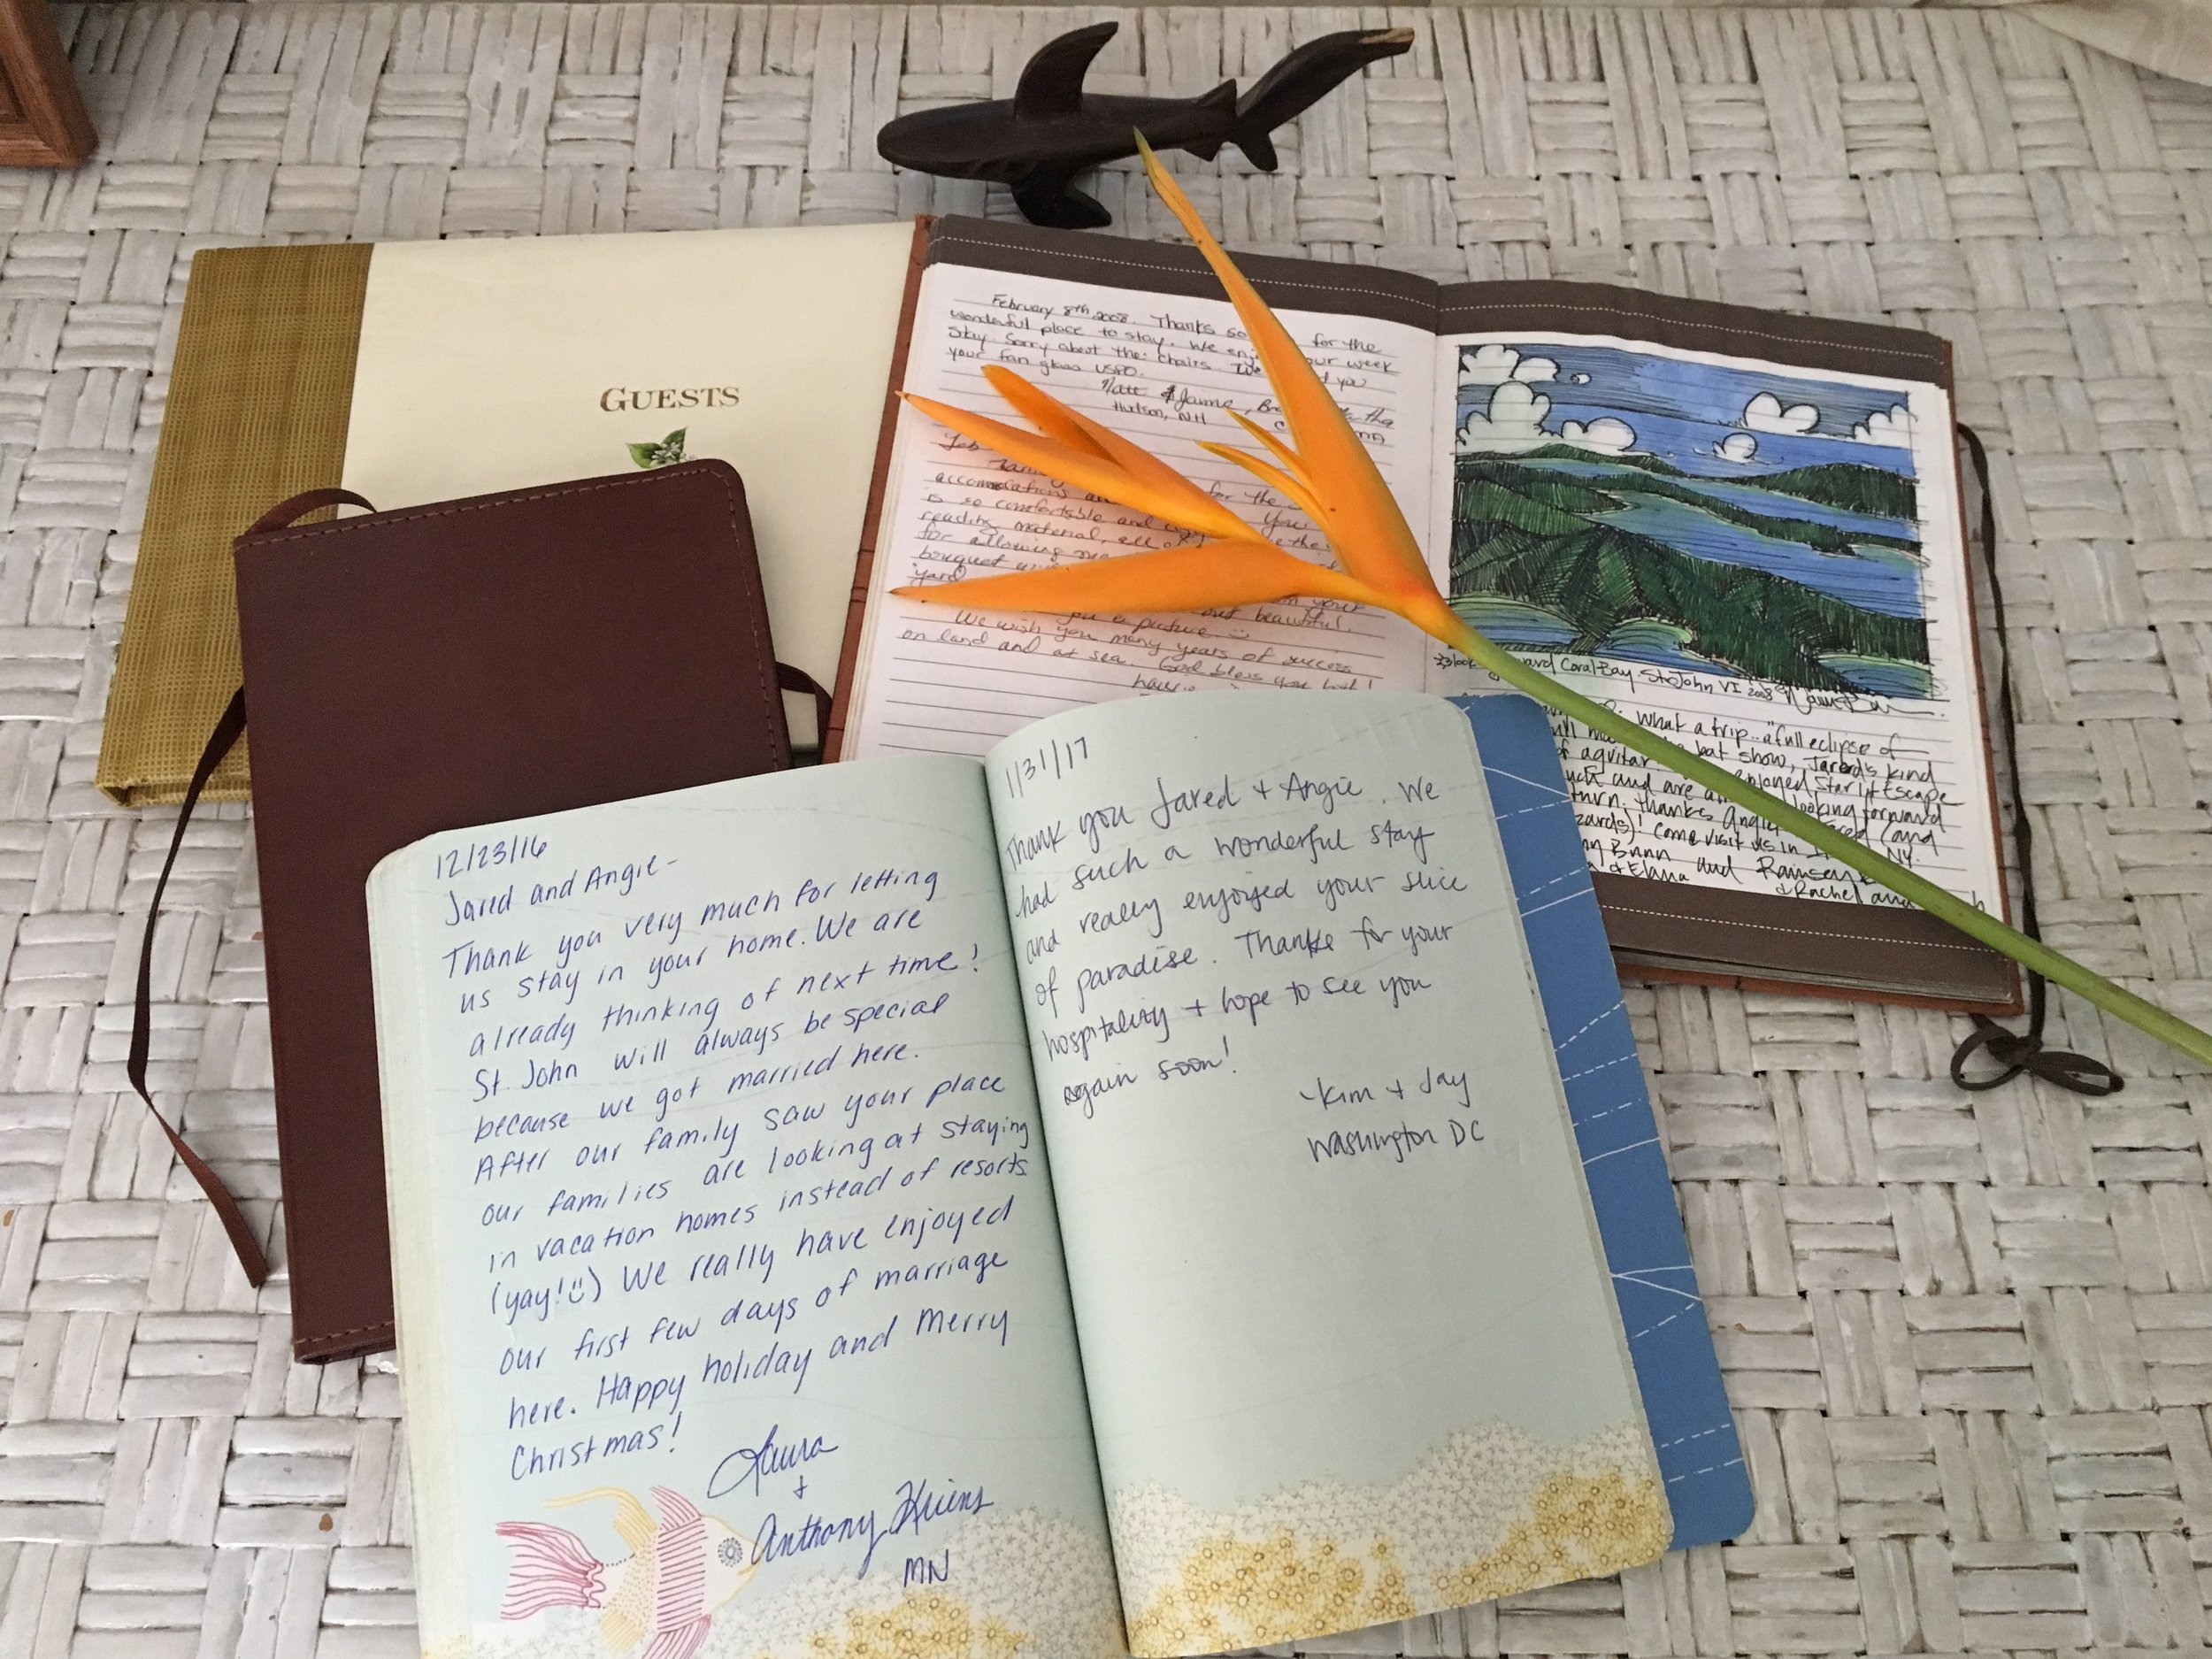 GUESTS
February 8th 2008. Thanks so for the
wonderful place to stay. We our week
Stay. Sorry about the chairs. We you
your fan glass USPO.
Matt & Jamie,
Hudson, NH
for the
accomodations
is so comfortable and Your
reading material, all
for allowing me
bouquet
yard your
you a picture. out beautiful.
We wish you many years of success
on land and at sea. God bless you both!
Coral Bay. St. John VI 2008
What a trip... "a full eclipse of
bat show, Jared's kind
enjoyed Starlit Escape
and are looking forward
thanks Angie (and
Come visit us in NY.
Bunn and
& Elana
& Rachel and
12/23/16
Jared and Angie-
Thank you very much for letting
us stay in your home. We are
already thinking of next time!
St. John will always be special
because we got married here.
After our family saw your place
our families are looking at staying
in vacation homes instead of resorts
(yay!☺) We really have enjoyed
our first few days of marriage
here. Happy holiday and Merry
Christmas!
Laura
+
Anthony
MN
1/31/17
Thank you Jared + Angie. We
had such a wonderful stay
and really enjoyed your slice
of paradise. Thanks for your
hospitality + hope to see you
again soon!
-Kim + Jay
Washington DC